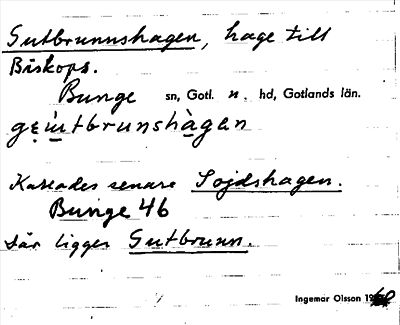 Gutbrunnshagen, hage till
Biskops.
Bunge sn, Gotl. n. hd, Gotlands län.
Kallades senare Sojdshagen.
Bunge 46
där ligger Gutbrunn.
Ingemar Olsson